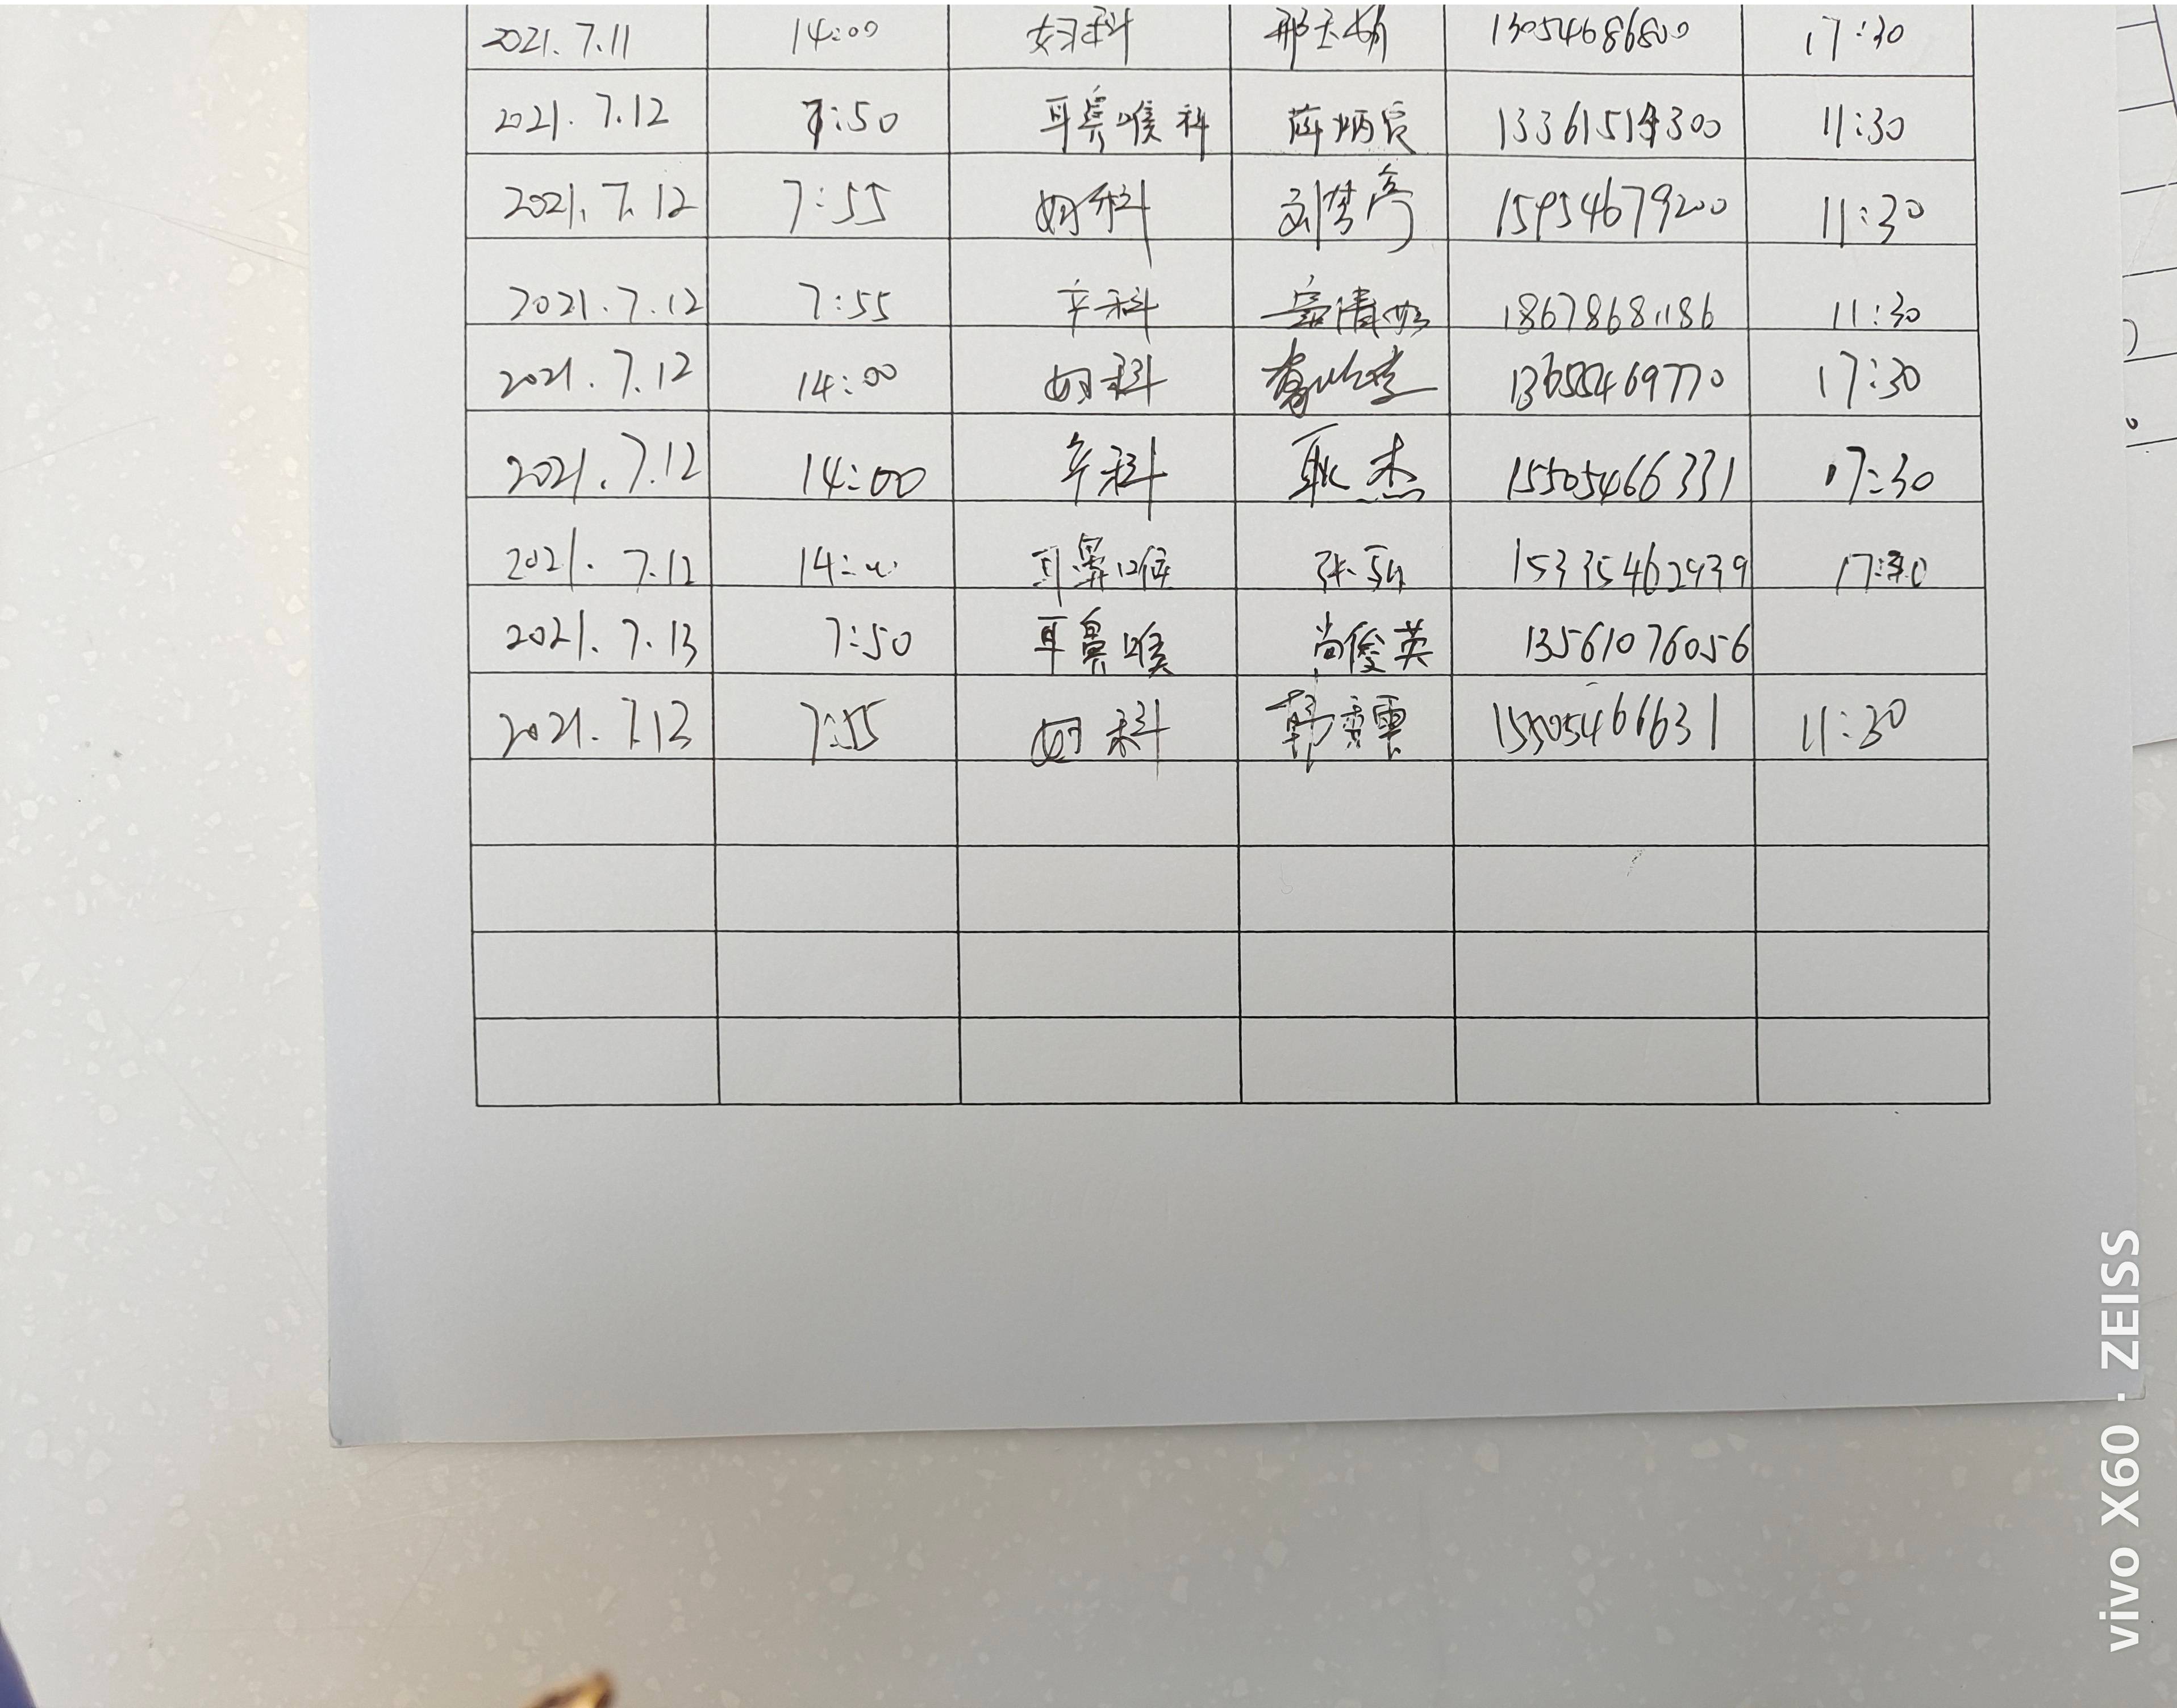 2021.7.11 14:00 妇科 邢玉娇 13054686800 17:30
2021.7.12 7:50 耳鼻喉科 薛炳辰 13361514300 11:30
2021.7.12 7:55 妇科 刘梦 15954679200 11:30
2021.7.12 7:55 产科 清 18678681186 11:30
2021.7.12 14:00 妇科 13655469770 17:30
2021.7.12 14:00 产科 耿杰 15505466331 17:30
2021.7.12 14:00 耳鼻喉 张 15335462939 17:30
2021.7.13 7:50 耳鼻喉 尚俊英 13561076056
2021.7.13 7:55 妇科 韩 15505466631 11:30
vivo X60 · ZEISS